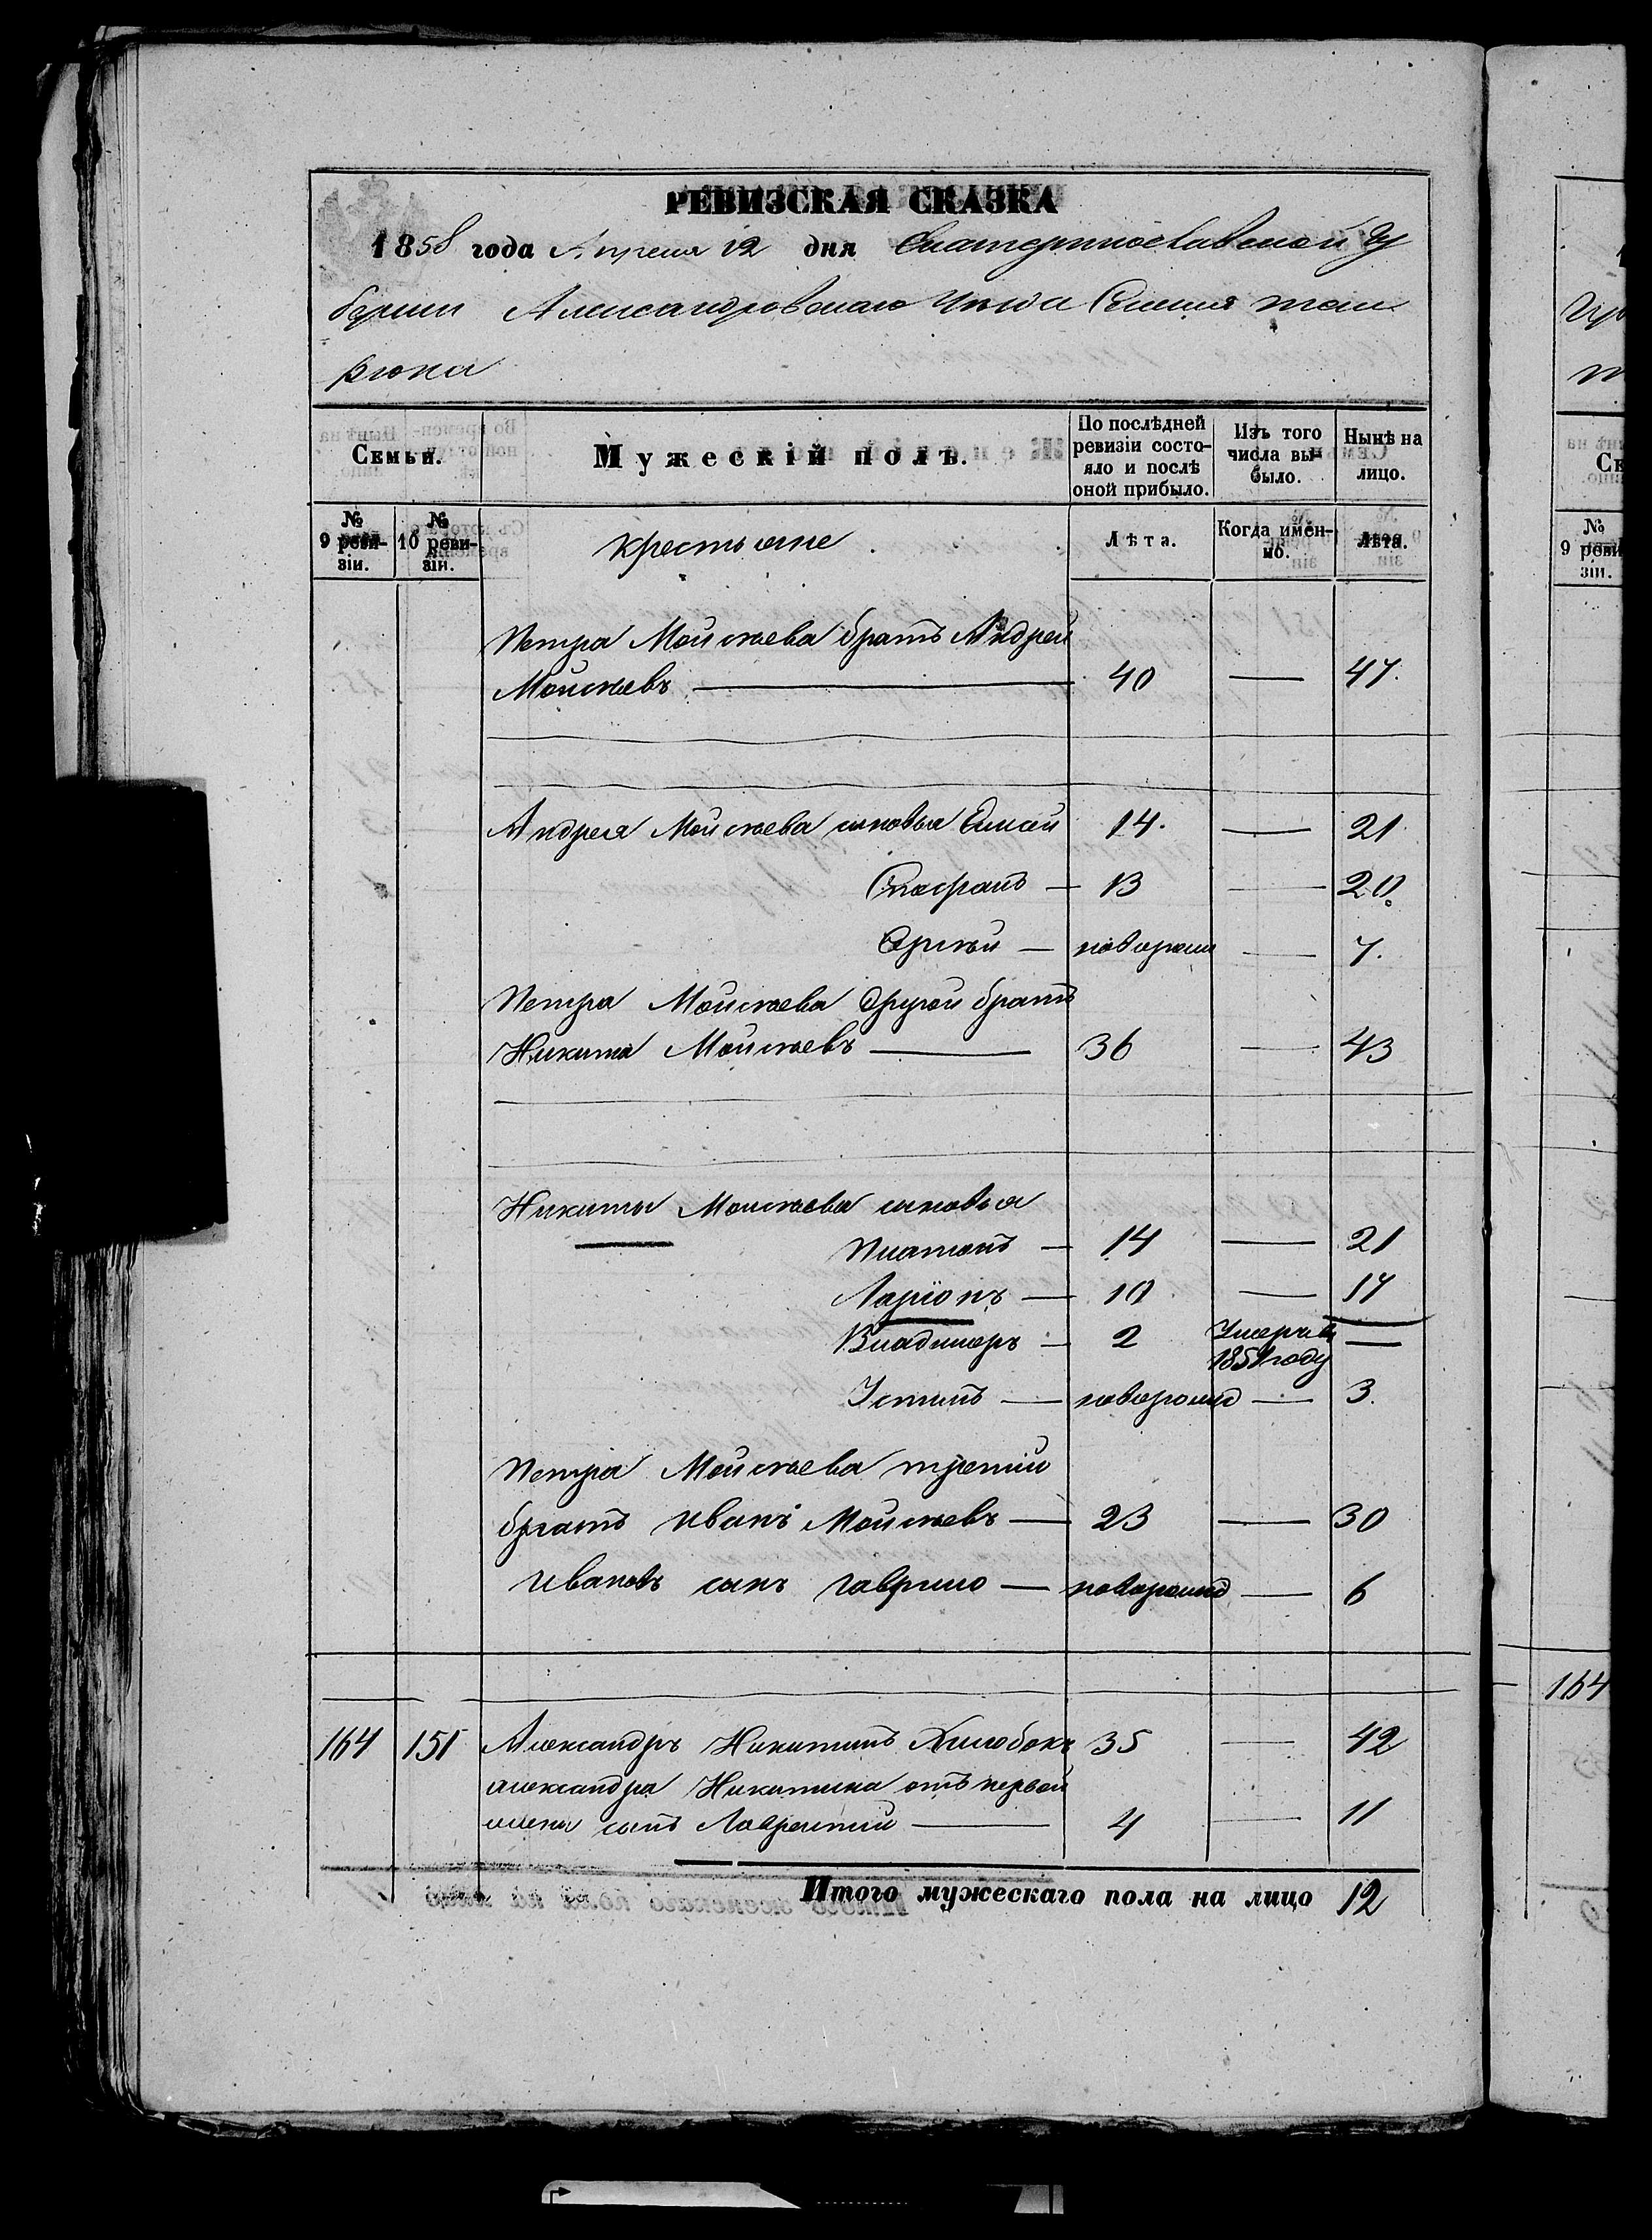 РЕВИЗСКАЯ СКАЗКА
1858 года Апреля 12 дня Екатеринославской Гу
бернии Александровскаго Уѣзда Селения Тем
рюка
Семьи.
Мужескій полъ.
По послѣдней ревизіи состо-
яло и послѣ
оной прибыло.
Изъ того
числа вы-
было.
Нынѣ на
лицо.
№
9 реви-
зіи.
№
10 реви-
зіи.
крестьяне
Лѣта.
Когда имен-
но.
Лѣта.
Петра Моисѣева братъ Андрей
Моисѣевъ 40 — 47.
Андрея Моисѣева сыновья Елисей 14. — 21
Евграфъ — 13 — 20.
Сергѣй — новорожд — 7.
Петра Моисѣева другой братъ
Никита Моисѣевъ — 36 — 43
Никиты Моисѣева сыновья
Платонъ — 14 — 21
Ларіонъ — 10 — 17
Владимеръ — 2 Умеръ в —
1851 году
Устинъ — новорожд — 3.
Петра Моисѣева третий
братъ Иванъ Моисѣевъ — 23 — 30
Ивановъ сынъ Гаврило — новорожд — 6
164 151 Александръ Никитинъ Хилобокъ 35 — 42
Александра Никитина отъ первой
жены сынъ Лаврентий — 4 — 11
Итого мужескаго пола на лицо 12
№
9 реви
зіи.
164